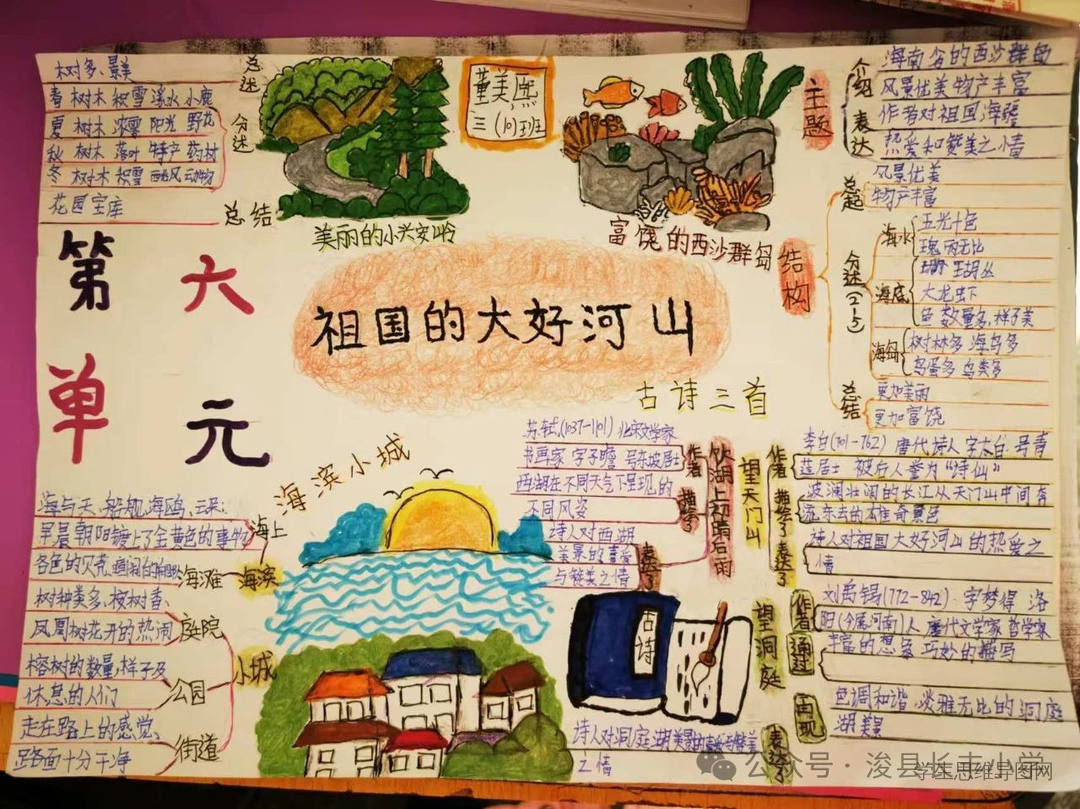 树多、景美
总述
春 树木 积雪 溪水 小鹿
夏 树木 浓雾 阳光 野花
秋 树木 落叶 特产 药材
冬 树木 积雪 西北风 动物
分述
花园宝库
总结
美丽的小兴安岭
董美熙
三(10)班
富饶的西沙群岛
主题
介绍
海南省的西沙群岛
风景优美 物产丰富
表达
作者对祖国海疆
热爱和赞美之情
结构
总起
风景优美
物产丰富
分述(2-5)
海水
五光十色
瑰丽无比
海底
珊瑚丛
大龙虾
鱼 数量多,样子美
海岛
树林多 海鸟多
鸟蛋多 鸟类多
总结
更加美丽
更加富饶
第六
单元
祖国的大好河山
古诗三首
饮湖上初晴后雨
作者
苏轼(1037-1101) 北宋文学家
书画家 字子瞻 号东坡居士
描绘了
西湖在不同天气下呈现的
不同风姿
表达了
诗人对西湖
美景的喜爱
与赞美之情
望天门山
作者
李白(701-762) 唐代诗人 字太白 号青
莲居士 被后人誉为“诗仙”
描绘了
波澜壮阔的长江从天门山中间有
流东去的雄奇景色
表达了
诗人对祖国大好河山的热爱之
情
望洞庭
作者
刘禹锡(772-842):字梦得 洛
阳(今属河南)人 唐代文学家 哲学家
通过
丰富的想象 巧妙的描写
再现
色调和谐 淡雅无比的洞庭
湖美景
表达了
诗人对洞庭湖美景的喜爱与赞美
之情
古诗
海滨小城
海滨
海上
海与天、船舰、海鸥、云朵
早晨朝阳镀上了金黄色的事物
海滩
各色的贝壳,
小城
庭院
树种类多、桉树香、
凤凰树花开的热闹
公园
榕树的数量,样子及
休息的人们
街道
走在路上的感觉、
路面十分干净
公众号·浚县长丰小学
学生思维导图网